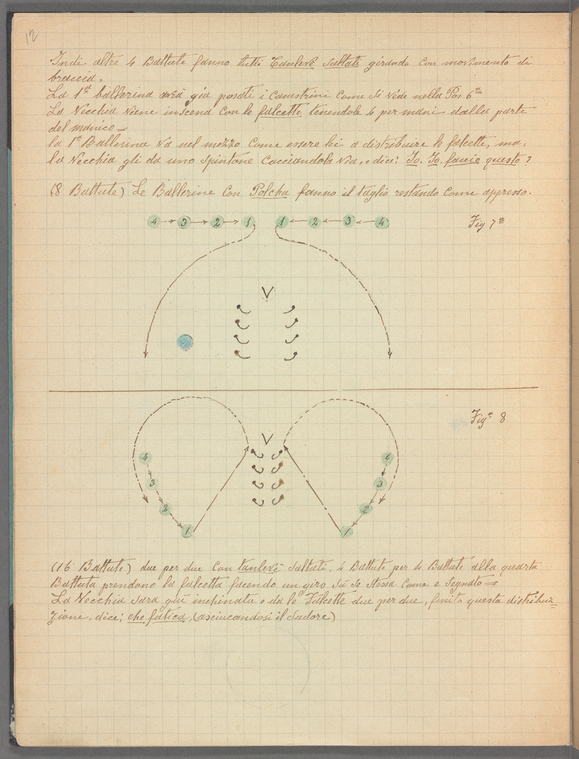 12
Indi altre 4 Battute fanno tutti Tanlevè Saltati girando con movimento di
braccia.
La 1ª ballerina avrà già posati i canestrini come si vede nella Pos 6ª
La Vecchia viene in scena con le falcette, tenendole 4 per mani dalla parte
del manico =
la 1ª Ballerina va nel mezzo come essere lei a distribuire le falcette, ma,
la Vecchia gli da uno spintone cacciandola via, e dice: Io. Io. faccio questo?
(8 Battute) Le Ballerine con Polcha fanno il taglio restando come appresso.
4 3 2 1 1 2 3 4 Fig 7ª
V
Figª 8
V
4 4
3 3
2 2
1 1
(16 Battute) due per due con tanlevè Saltati, 4 Battute per 4 Battute alla quarta
Battuta prendono la falcetta facendo un giro Su se stessa come è Segnato =
La Vecchia sara qui inchinata e da le Falcette due per due, finita questa distribu=
zione, dice: che fatica, (asciucandosi il Sudore)